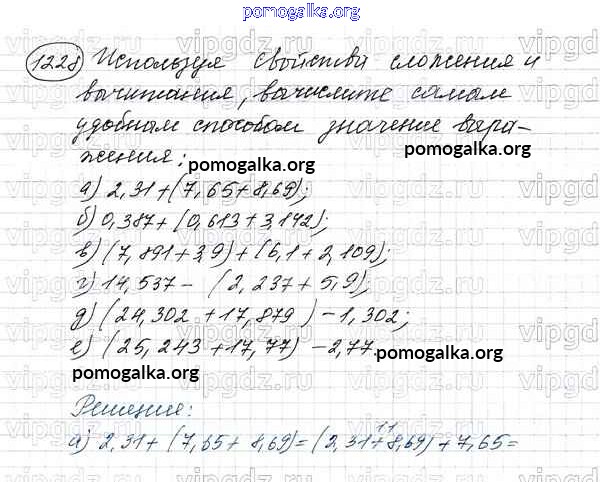 pomogalka.org
1228 Используя свойства сложения и
вычитания, вычислите самым
удобным способом значение выра-
жения:
pomogalka.org
pomogalka.org
а) 2,31+(7,65+8,69);
б) 0,387+(0,613+3,142);
в) (7,891+3,9)+(6,1+2,109);
г) 14,537-(2,237+5,9);
д) (24,302+17,879)-1,302;
е) (25,243+17,77)-2,77.
pomogalka.org
pomogalka.org
Решение:
а) 2,31+(7,65+8,69)=(2,31+8,69)+7,65=
11
vipgdz.ru